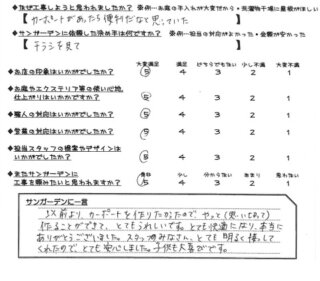 ◆なぜ工事しようと思われましたか？ 条例…お庭の手入れが大変だから・洗濯物干場に屋根がほしい
【カーポートがあったら便利だなと思っていた】
◆サンガーデンに依頼した決め手は何ですか？ 条例…担当の対応がよかった・金額が安かった
【チラシを見て】
大変満足 満足 どちらでもない 少し不満 大変不満
◆お店の印象はいかがでしたか？ 5 4 3 2 1
◆お庭やエクステリア等の使い心地、
仕上がりはいかがですか？ 5 4 3 2 1
◆職人の対応はいかがでしたか？ 5 4 3 2 1
◆営業の対応はいかがでしたか？ 5 4 3 2 1
◆担当スタッフの提案やデザインは
いかがでしたか？ 5 4 3 2 1
◆またサンガーデンに 是非 少し 分からない あまり 思わない
工事を頼みたいと思われますか？ 5 4 3 2 1
サンガーデンに一言
以前より、カーポートを作りたかったので、やっと(思い切って)
作ることができて、とてもうれしいです。とても快適になり、本当に
ありがとうございました。スタッフのみなさん、とても明るく接して
くれたので、とても安心しました。子供も大喜びです。